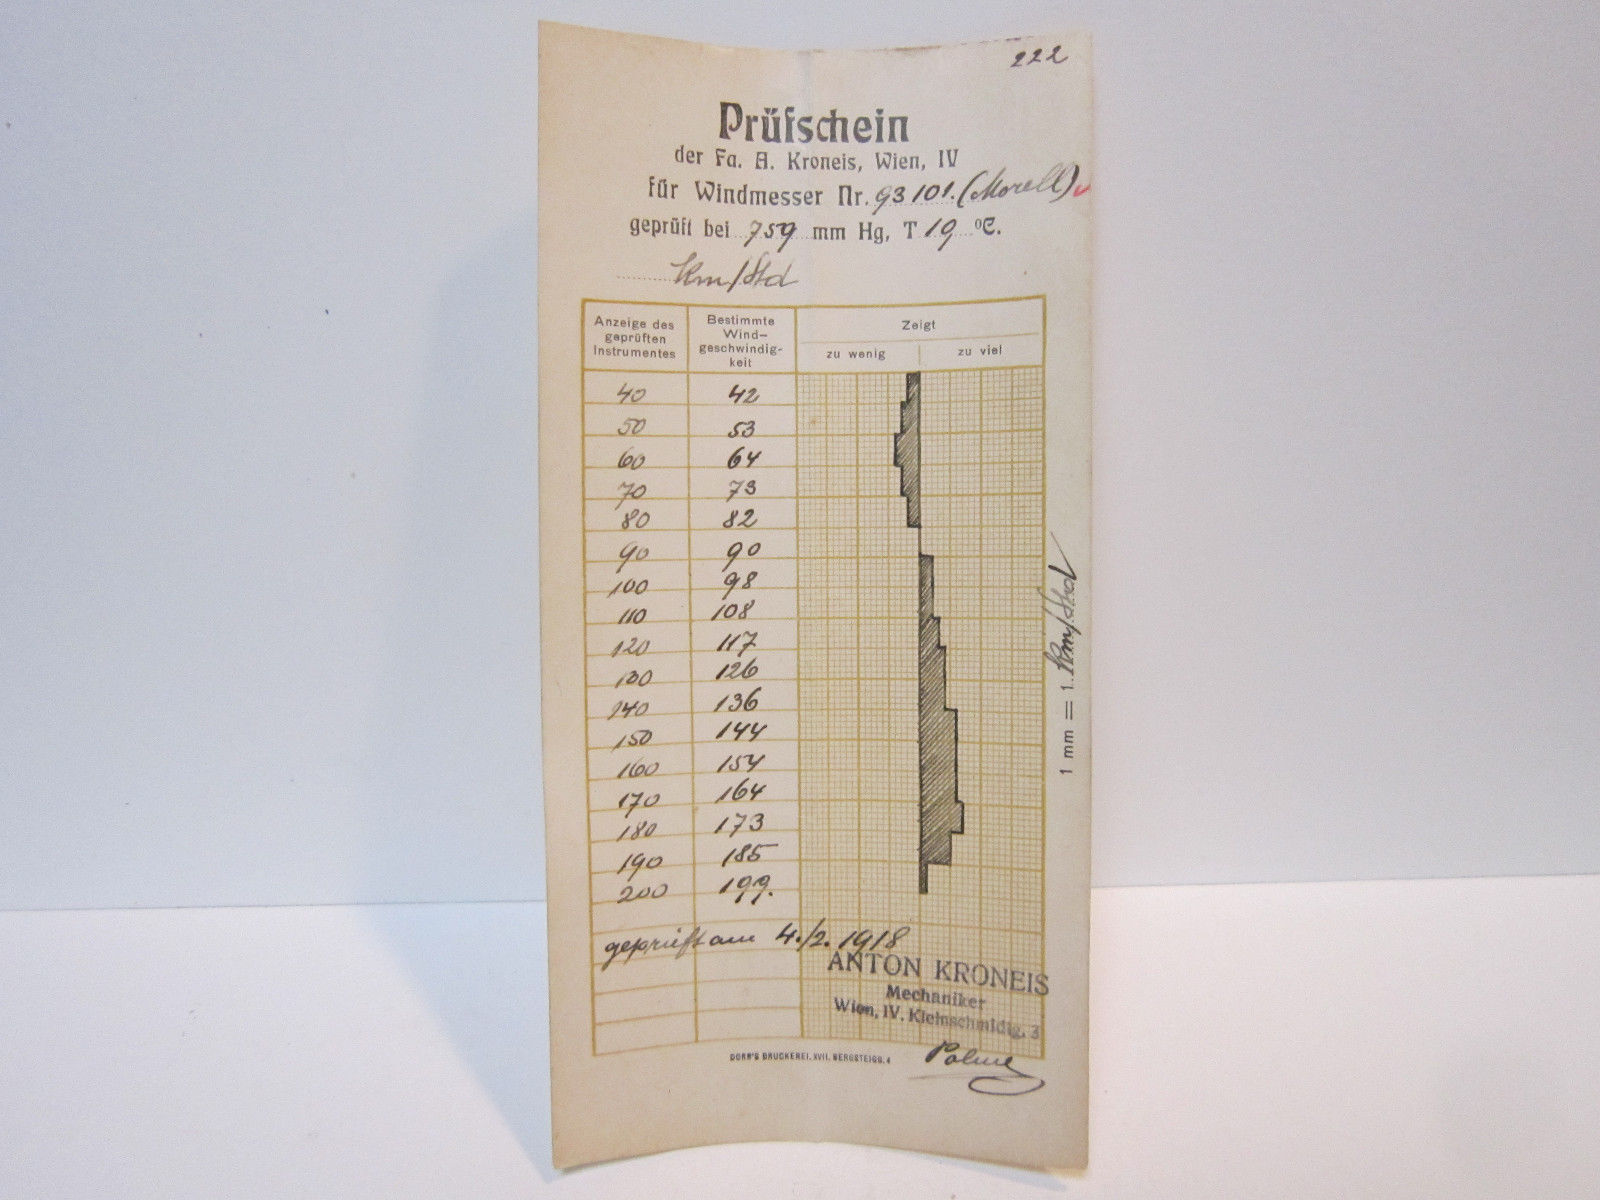 222
Prüfschein
der Fa. A. Kroneis, Wien, IV
für Windmesser Nr. 93101. (Morell)
geprüft bei 759 mm Hg, T 19 °C.
km/Std
Anzeige des geprüften Instrumentes
Bestimmte Wind-geschwindig-keit
Zeigt
zu wenig zu viel
40 42
50 53
60 64
70 73
80 82
90 90
100 98
110 108
120 117
130 126
140 136
150 144
160 154
170 164
180 173
190 185
200 199.
1 mm = 1 km/Std
geprüft am 4./2. 1918
ANTON KRONEIS
Mechaniker
Wien, IV. Kleinschmidg. 3
DORR'S DRUCKEREI. XVII. BERGSTEIGG. 4